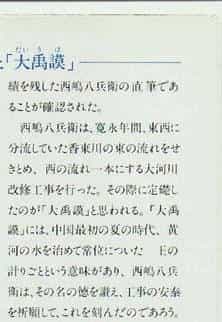 「大禹謨」
だいうぼ
績を残した西嶋八兵衛の直筆であ
ることが確認された。
西嶋八兵衛は、寛永年間、東西に
分流していた香東川の東の流れをせ
きとめ、西の流れ一本にする大河川
改修工事を行った。その際に定礎し
たのが「大禹謨」と思われる。「大禹
謨」には、中国最初の夏の時代、黄
河の水を治めて帝位についた　王の
計りごとという意味があり、西嶋八兵
衛は、その名の徳を讃え、工事の安泰
を祈願して、これを刻んだのであろう。